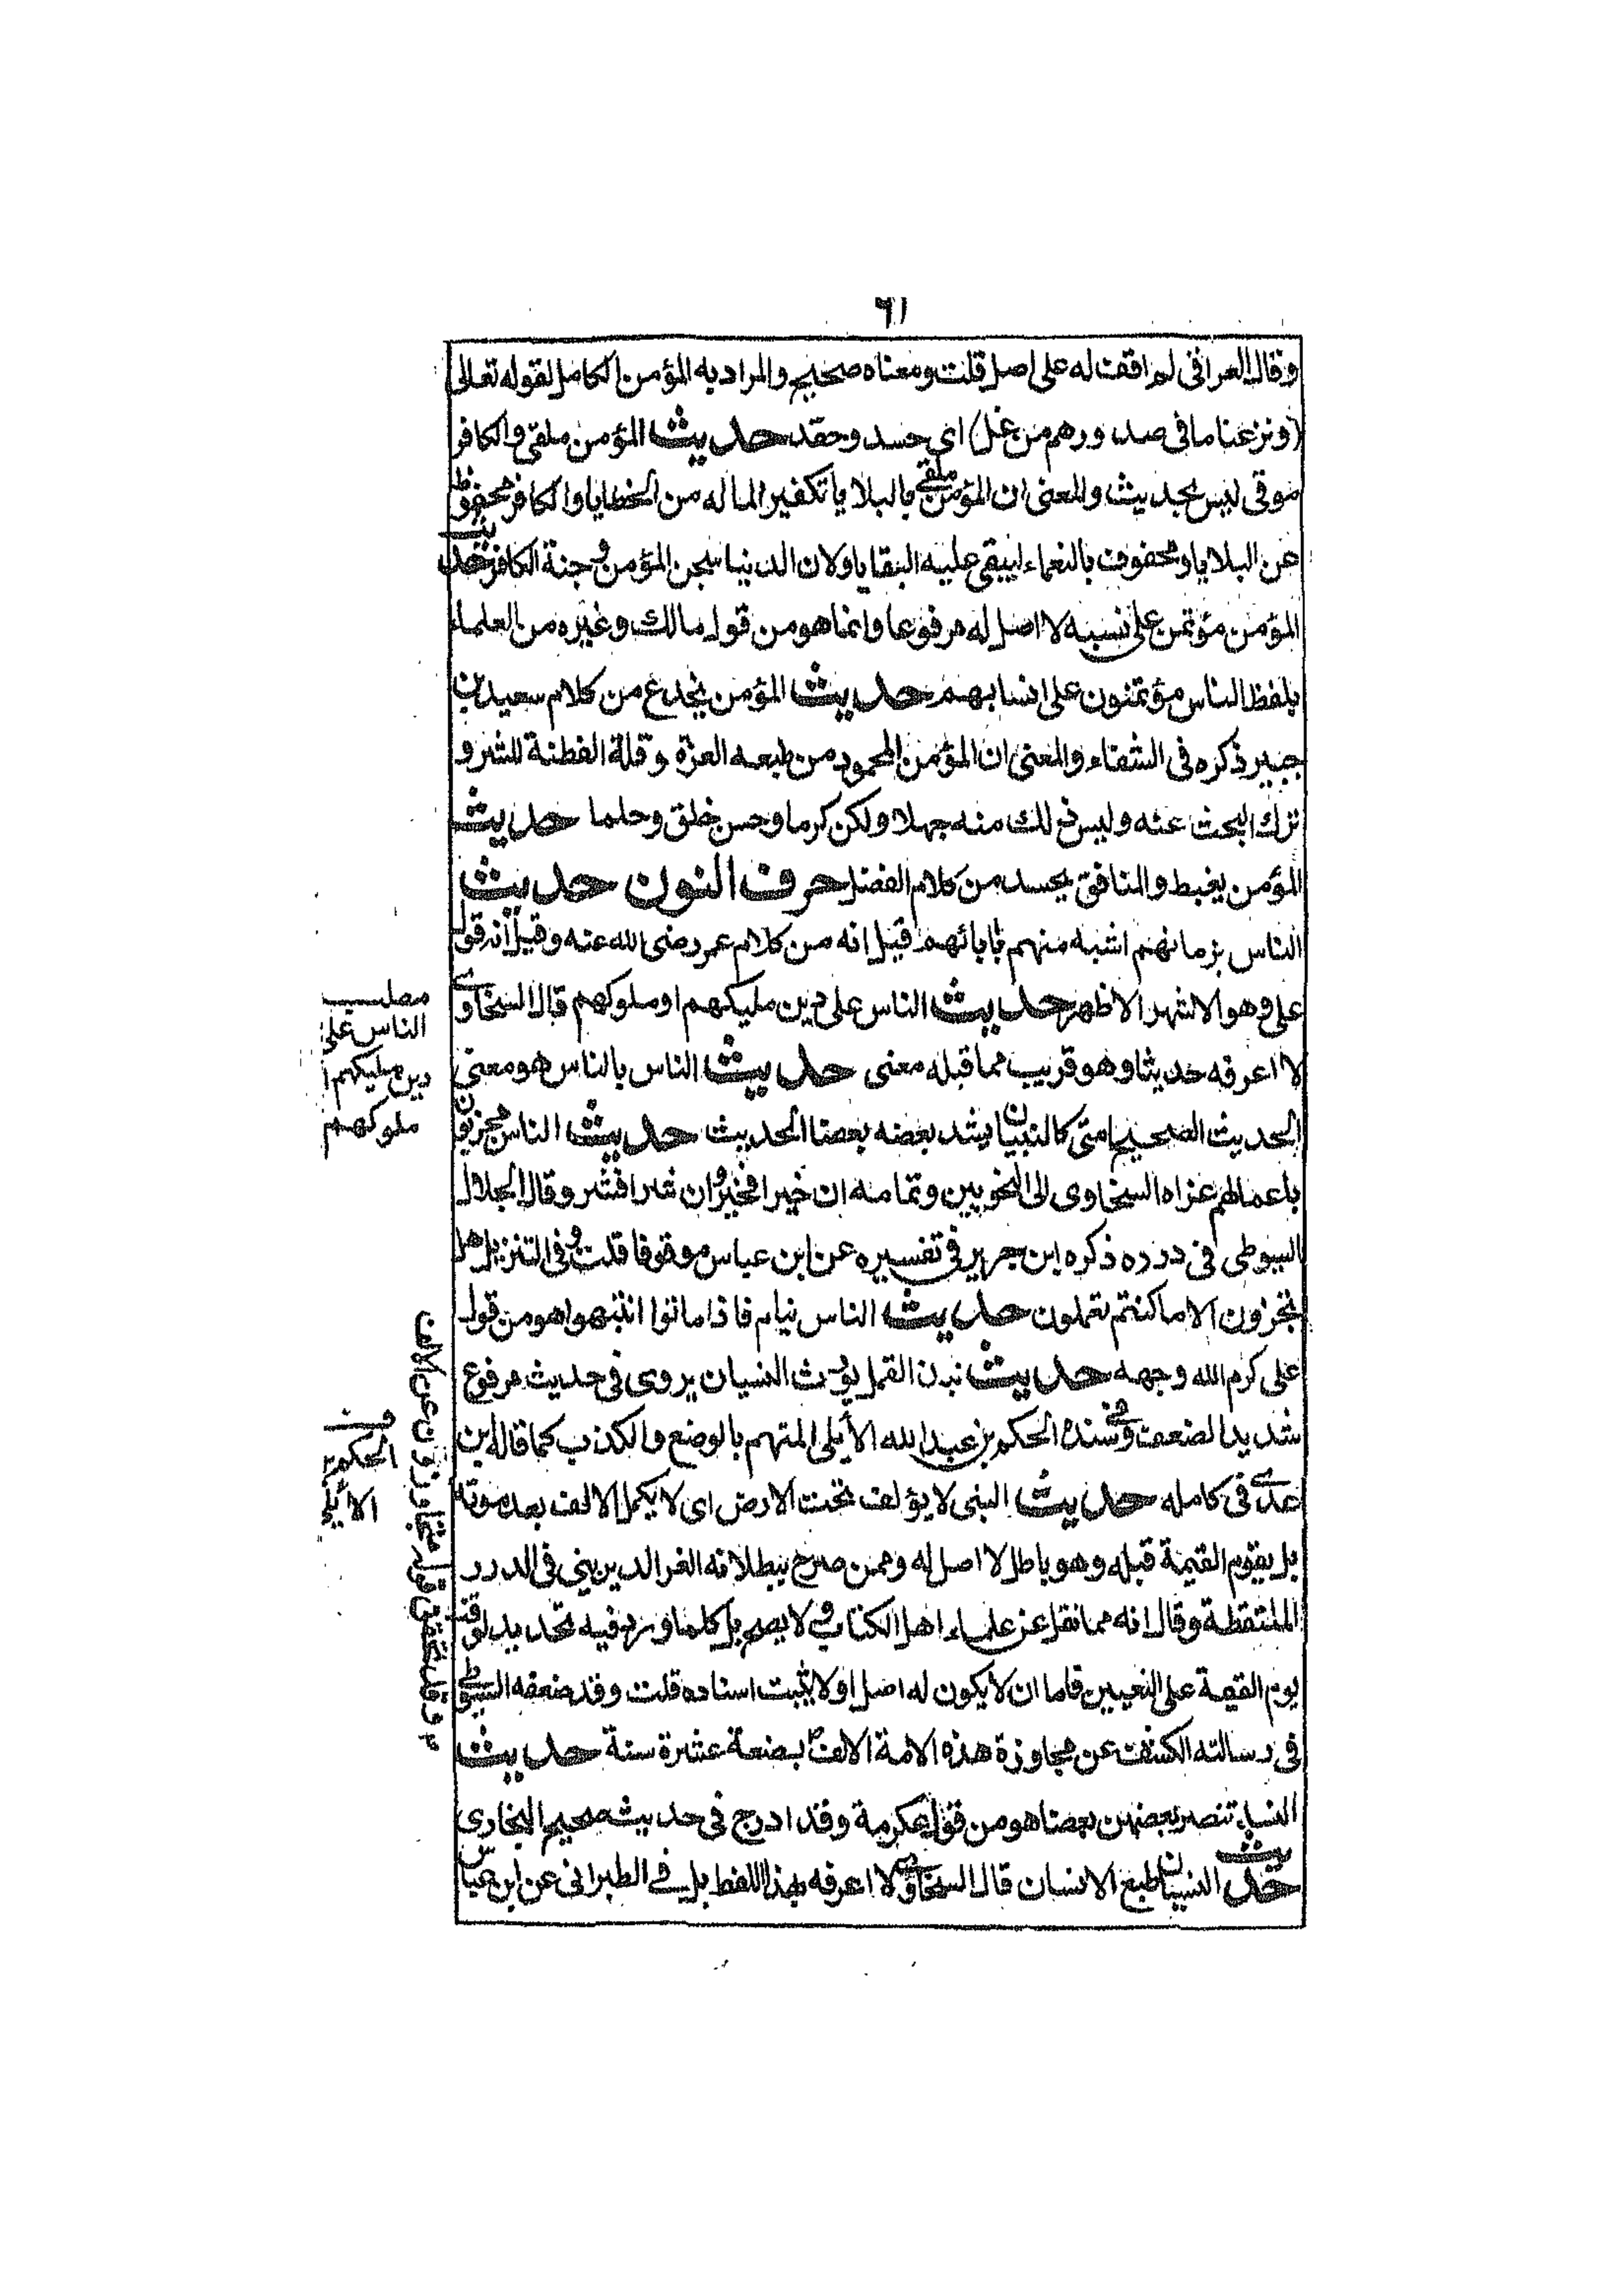 ٦١
وقال العراقى لم اقف له على اصل قلت ومعناه صحيح والمراد به المؤمن الكامل لقوله تعالى
(ونزعنا ما فى صدورهم من غل) اى حسد وحقد حديث المؤمن ملقى والكافر
موقى ليس بحديث والمعنى ان المؤمن ملقى بالبلايا تكفيرا لما له من الخطايا والكافر محفوظ
عن البلايا ومحفوف بالنعماء ليبقى عليه البقايا ولان الدنيا سجن المؤمن وجنة الكافر حديث
المؤمن مؤتمن على نسبه لا اصل له مرفوعا وانما هو من قول مالك وغيره من العلماء
بلفظ الناس مؤتمنون على انسابهم حديث المؤمن يخدع من كلام سعيد بن
جبير ذكره فى الشفاء والمعنى ان المؤمن المحمود من طبعه العزة وقلة الفطنة للشر و
ترك البحث عنه وليس ذلك منه جهلا ولكن كرما وحسن خلق وحلما حديث
المؤمن يغبط والمنافق يحسد من كلام الفضل حرف النون حديث
الناس بزمانهم اشبه منهم بابائهم قيل انه من كلام عمر رضى الله عنه وقيل انه قول
على وهو الاشهر الاظهر حديث الناس على دين مليكهم او ملوكهم قال السخاوى
لا اعرفه حديثا وهو قريب مما قبله معنى حديث الناس بالناس هو معنى
الحديث الصحيح امتى كالبنيان يشد بعضه بعضا الحديث حديث الناس مجزيون
باعمالهم عزاه السخاوى الى النحويين وتمامه ان خيرا فخير وان شرا فشر وقال الجلال
السيوطى فى درره ذكره ابن جرير فى تفسيره عن ابن عباس موقوفا قلت وفى التنزيل هل
تجزون الا ما كنتم تعملون حديث الناس نيام فاذا ماتوا انتبهوا هو من قول
على كرم الله وجهه حديث نبذ القمل يورث النسيان يروى فى حديث مرفوع
شديد الضعف وفى سنده الحكم بن عبد الله الأيلى المتهم بالوضع والكذب كما قاله ابن
عدى فى كامله حديث النبى لا يؤلف تحت الارض اى لا يكمل الالف بعد موته
بل يقوم القيمة قبله وهو باطل لا اصل له وممن صرح ببطلانه الفر الديرينى فى الدرر
الملتقطة وقال انه مما نقل عن علماء اهل الكتاب ولا يصح بل كلما ورد فيه تحديد لوقت
يوم القيمة على التعيين فاما ان لا يكون له اصل او لا يثبت اسناده قلت وقد ضعفه السيوطى
فى رسالته الكشف عن مجاوزة هذه الامة الالف بضعة عشرة سنة حديث
النساء تنصر بعضهن بعضا هو من قول عكرمة وقد ادرج فى حديث صحيح البخارى
حديث النسيان طبع الانسان قال السخاوى لا اعرفه بهذا اللفظ بل فى الطبرانى عن ابن عباس
مطلب
الناس على
دين مليكهم ا
ملوكهم
ف
الحكم
الأيلى